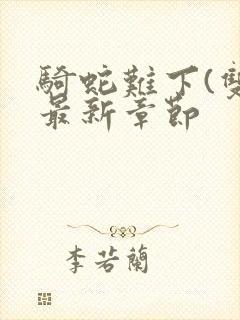 騎蛇難下(雙
最新章節
李若蘭